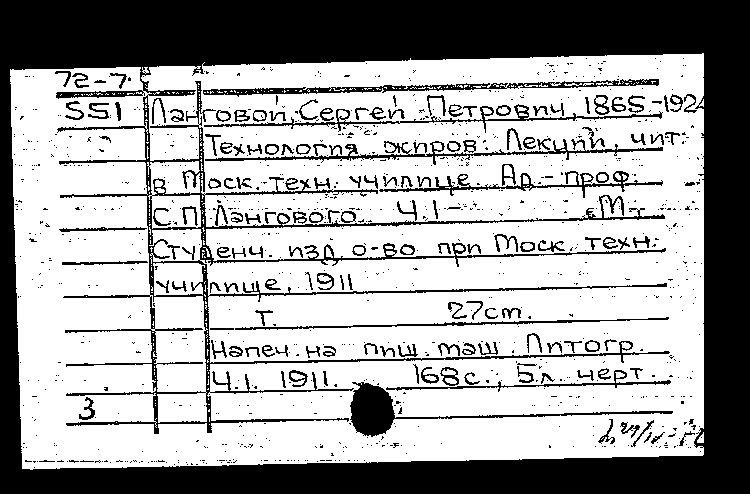 72-7
551 Ланговой, Сергей Петрович, 1865-1924
Технология жиров. Лекции, чит.
в Моск. техн. училище Ад-проф.
С.П. Лангового Ч.1- М.
Студенч. изд. о-во при Моск. техн.
училище, 1911
т. 27cm.
Напеч. на пиш. маш. Литогр.
Ч.1. 1911. 168с., 5л. черт.
3